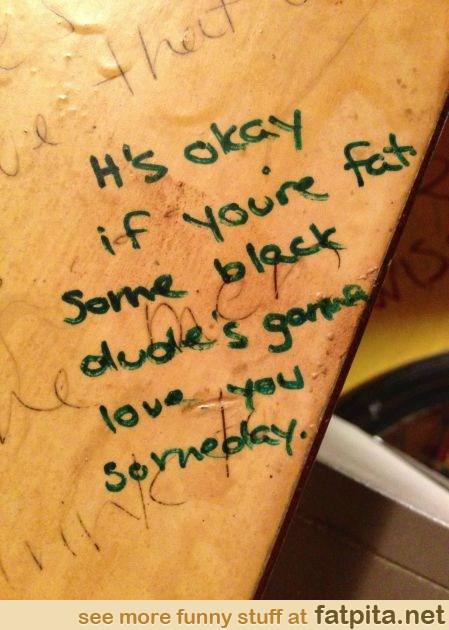 that
It's okay
if you're fat.
Some black
dude's gonna
love you
someday.
see more funny stuff at fatpita.net